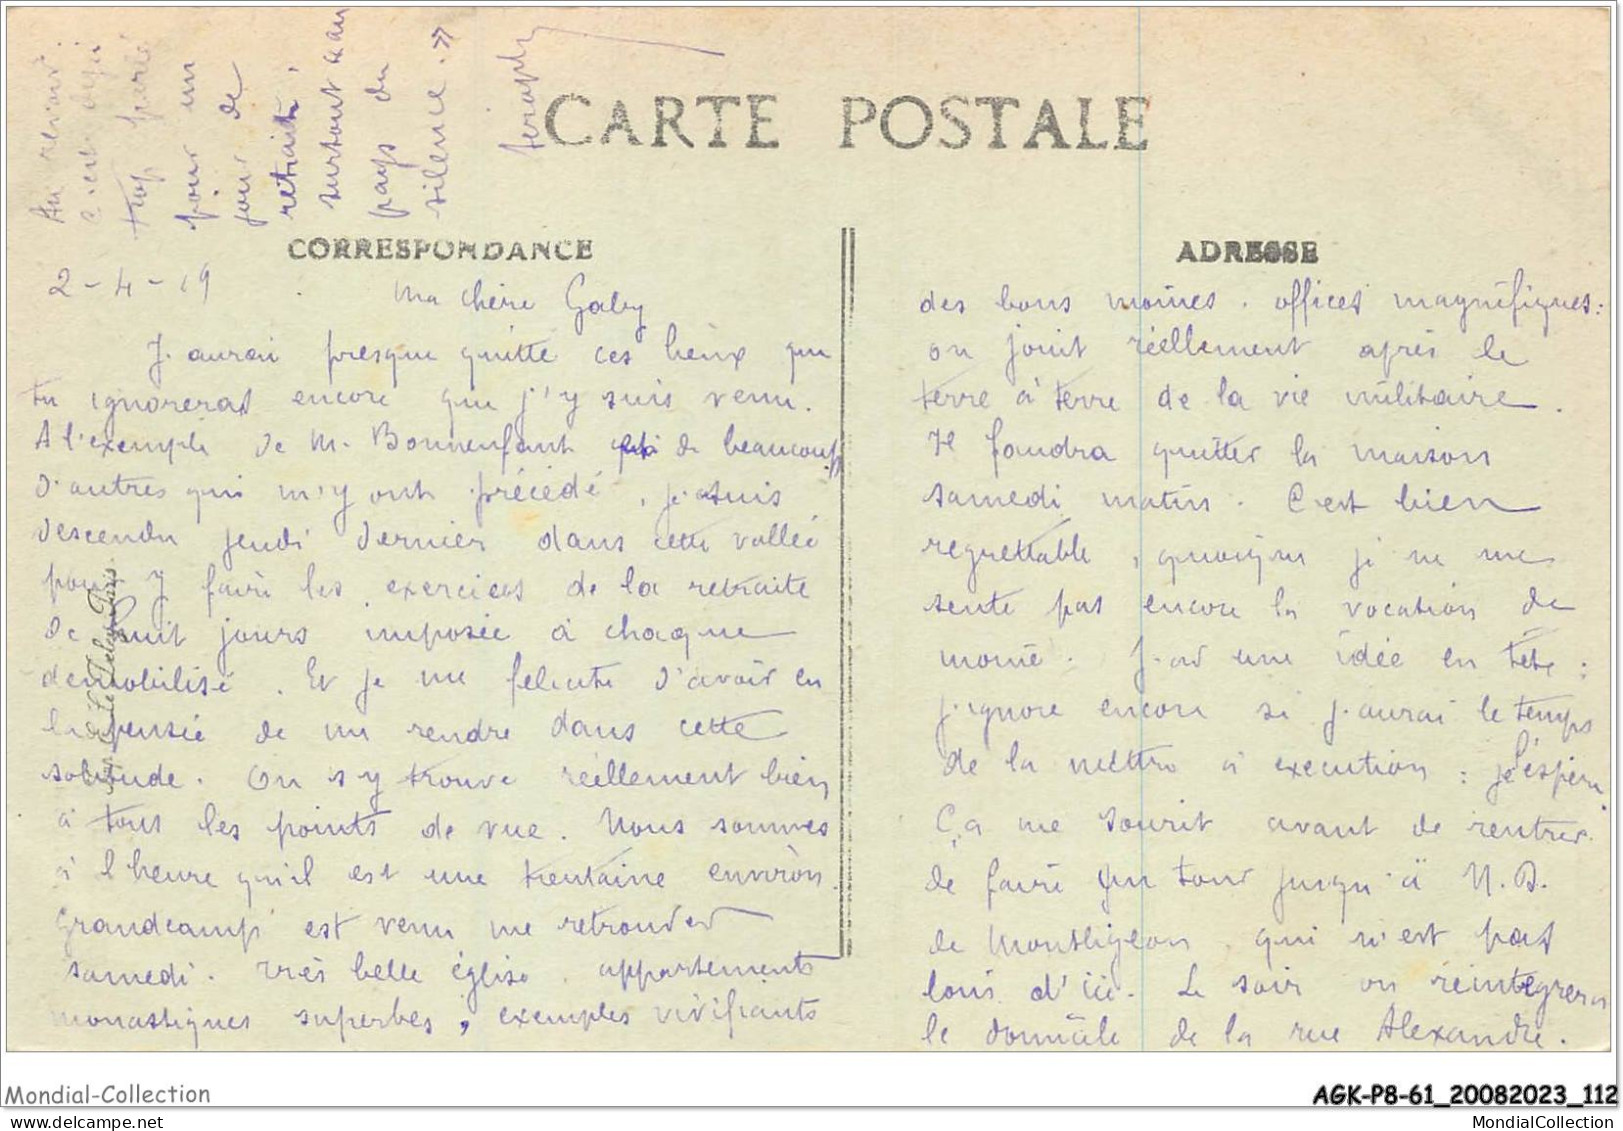 Au revoir.
C'est déjà
trop parlé
pour un
jour de
retraite,
surtout au
pays du
silence. »
CARTE POSTALE
CORRESPONDANCE
ADRESSE
2-4-19
Ma chère Gaby
J'aurai presque quitté ces lieux que
tu ignoreras encore que j'y suis venu.
A l'exemple de M. Bonnenfant et de beaucoup
d'autres qui m'y ont précédé, je suis
descendu jeudi dernier dans cette vallée
pour y faire les exercices de la retraite
de huit jours imposée à chaque
démobilisé. Et je me félicite d'avoir eu
la pensée de me rendre dans cette
solitude. On s'y trouve réellement bien
à tous les points de vue. Nous sommes
à l'heure qu'il est une trentaine environ.
Grandcamp est venu me retrouver
samedi. Très belle église, appartements
monastiques superbes, exemples vivifiants
des bons moines. Offices magnifiques:
on jouit réellement après le
terre à terre de la vie militaire.
Il faudra quitter la maison
samedi matin. C'est bien
regrettable, quoique je ne me
sente pas encore la vocation de
moine. J'ai une idée en tête :
j'ignore encore si j'aurai le temps
de la mettre à exécution : je l'espère.
Ça me sourit avant de rentrer
de faire un tour jusqu'à N.D.
de Montligeon qui n'est pas
loin d'ici. Le soir on réintégrera
le domicile de la rue Alexandre.
Mondial-Collection
AGK-P8-61_20082023_112
MondialCollection